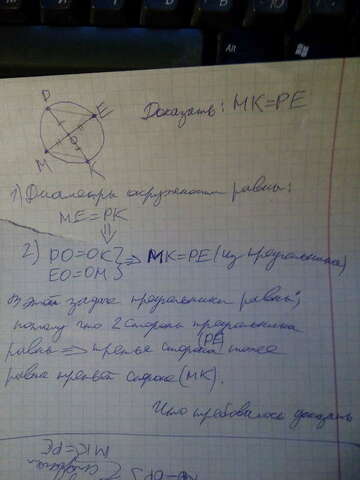 Р
Е
О
М
К
Доказать: МК=РЕ
1) Диаметры окружности равны:
МЕ=РК
⇓
2) РО=ОК
ЕО=ОМ } ⇒ МК=РЕ (из треугольника)
В этой задаче треугольники равны,
потому что 2 стороны треугольника
равны ⇒ третья сторона (РЕ) тоже
равна третьей стороне (МК).
Что требовалось доказать
МК=РЕ
Alt